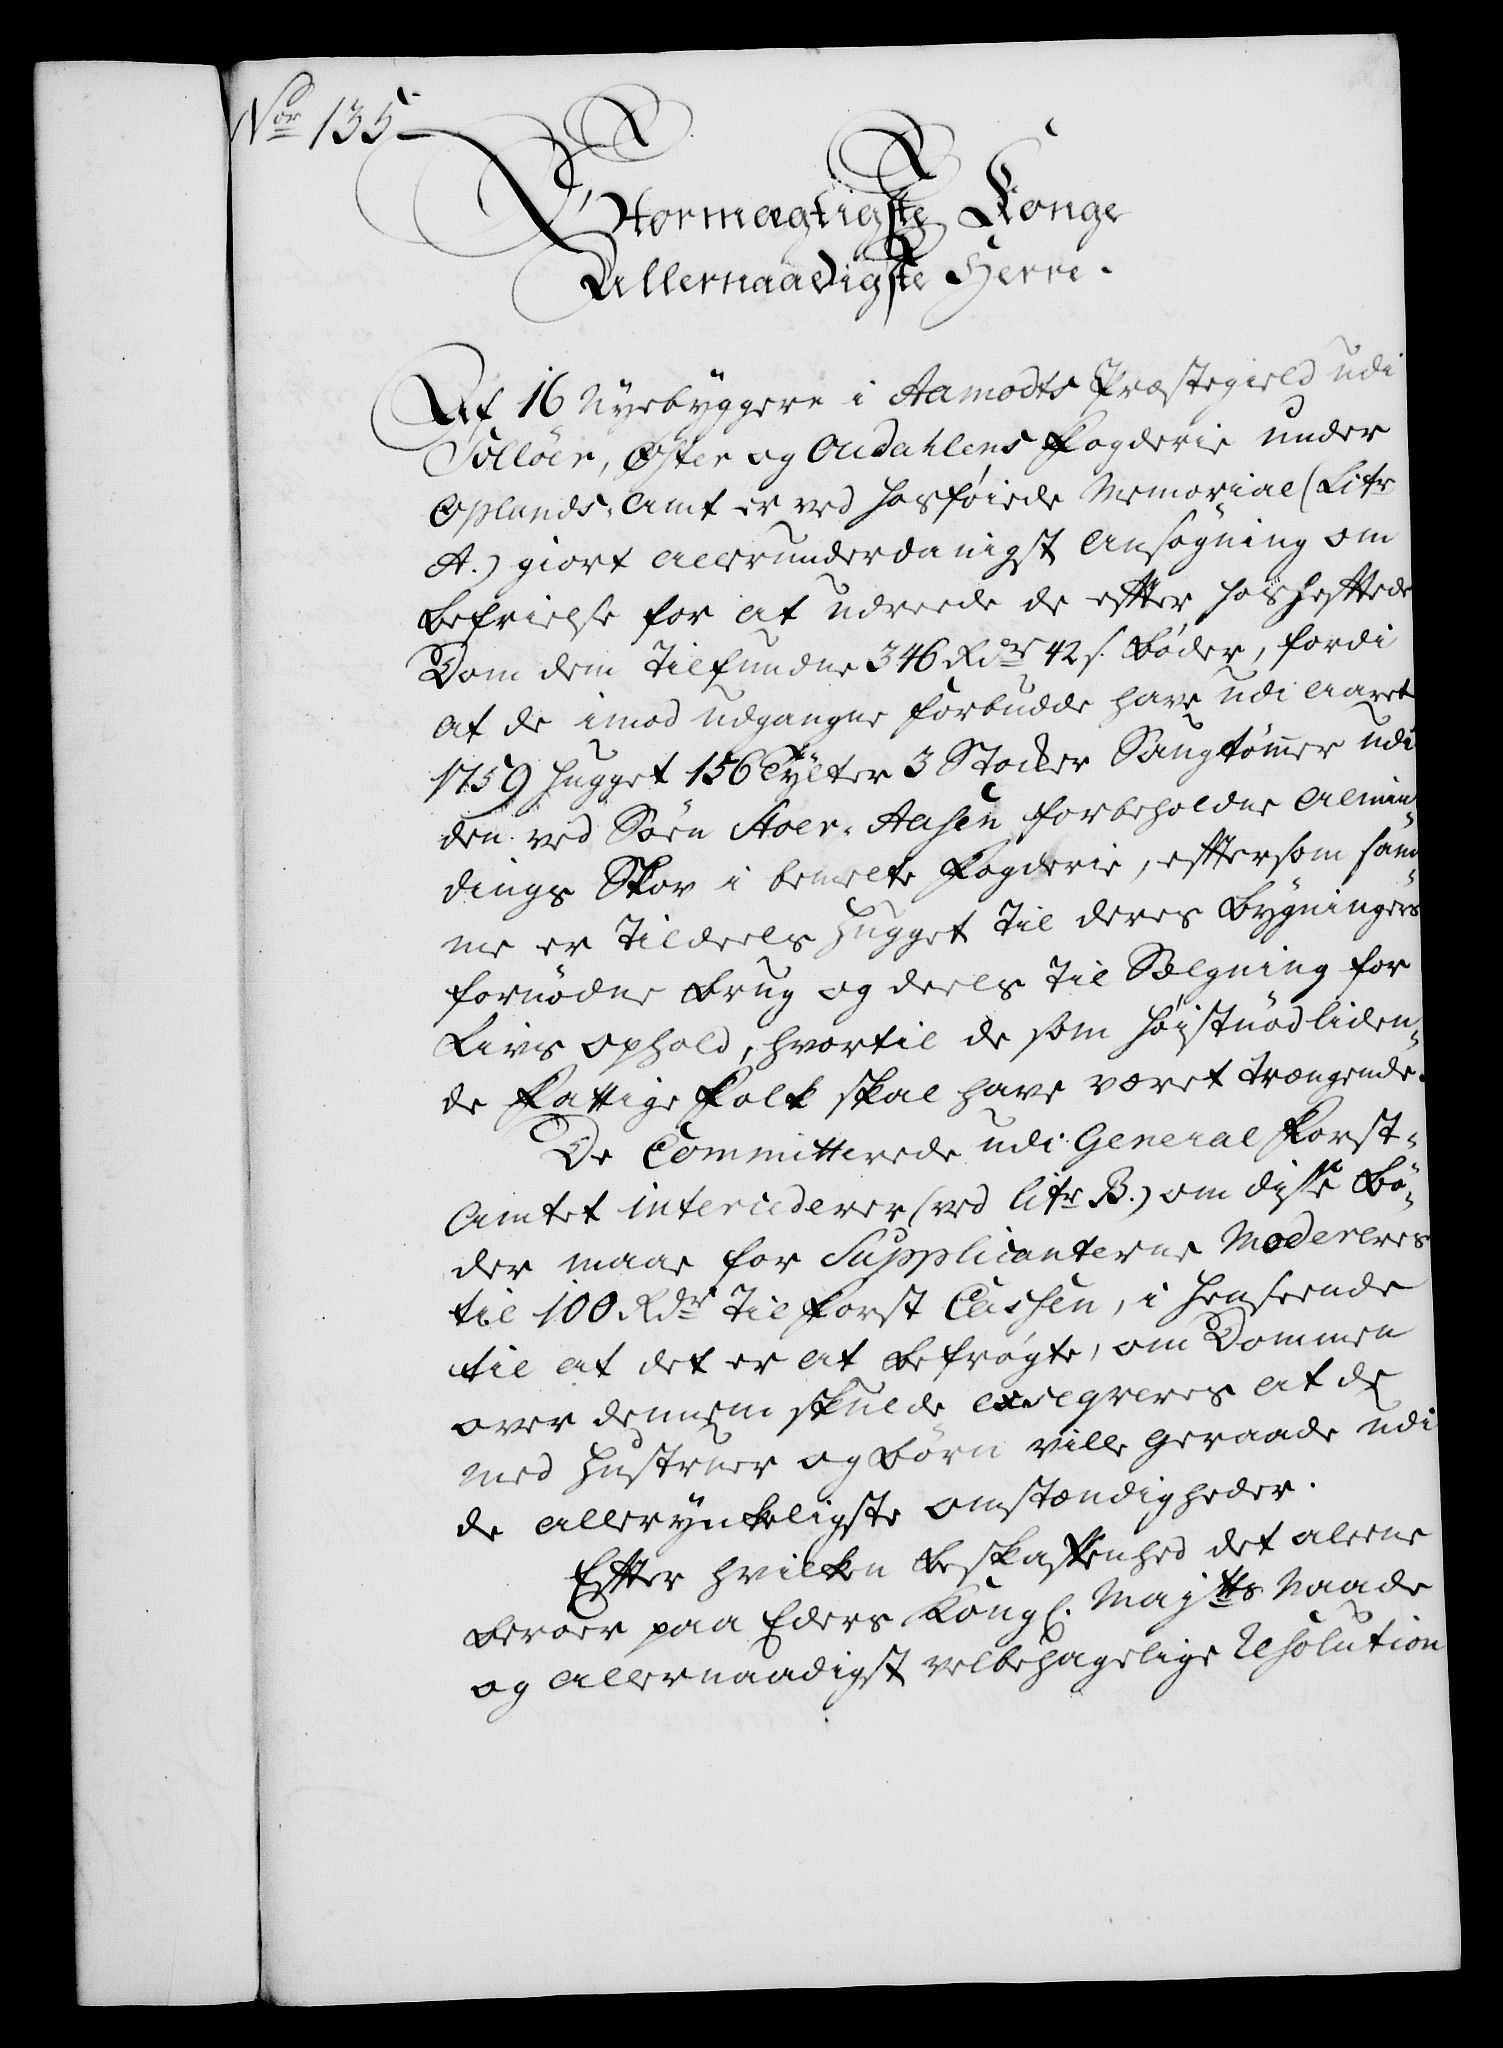 Nor 135
Stormægtigste Konge
Allernaadigste Herre.
Af 16 Nyebyggere i Aamodts Præstegield udi
Solløer, Øster og Oudahlens Fogderie under
Oplands-Amt er ved hosføiede Memorial (Litr
A.) giort allerunderdanigst Ansøgning om
befrielse for at udreede de effter hoshefftede
Dom dem tilfundne 346 Rdr 42 s. bøder, fordi
at de imod udgangne forbudde have udi Aaret
1759 hugget 156 Tylter 3 Stocker Saugtømer udi
den ved Søen Stoer-Aasen forbeholdne Almin-
dings Skov i bemelte Fogderie, efftersom sam-
me er tildeels hugget til deres bygningers
fornødne brug og deels til Sælgning for
Livs ophold, hvortil de som høistnødliden-
de Fattige Folk skal have været trængende.
De Committerede udi General Forst-
Amtet intercederer (ved litr B.) om disse bø-
der maae for Supplicanterne Modereres
til 100 Rdr til Forst Cassen, i henseende
til at det er at befrøgte, om Dommen
over dennem skulde exseqveres at de
med hustruer og børn ville geraade udi
de allerynkeligste omstændigheder.
Effter hvilken beskaffenhed det aleene
beroer paa Eders Kongl. Majtts Naade
og allernaadigst velbehagelige Resolution